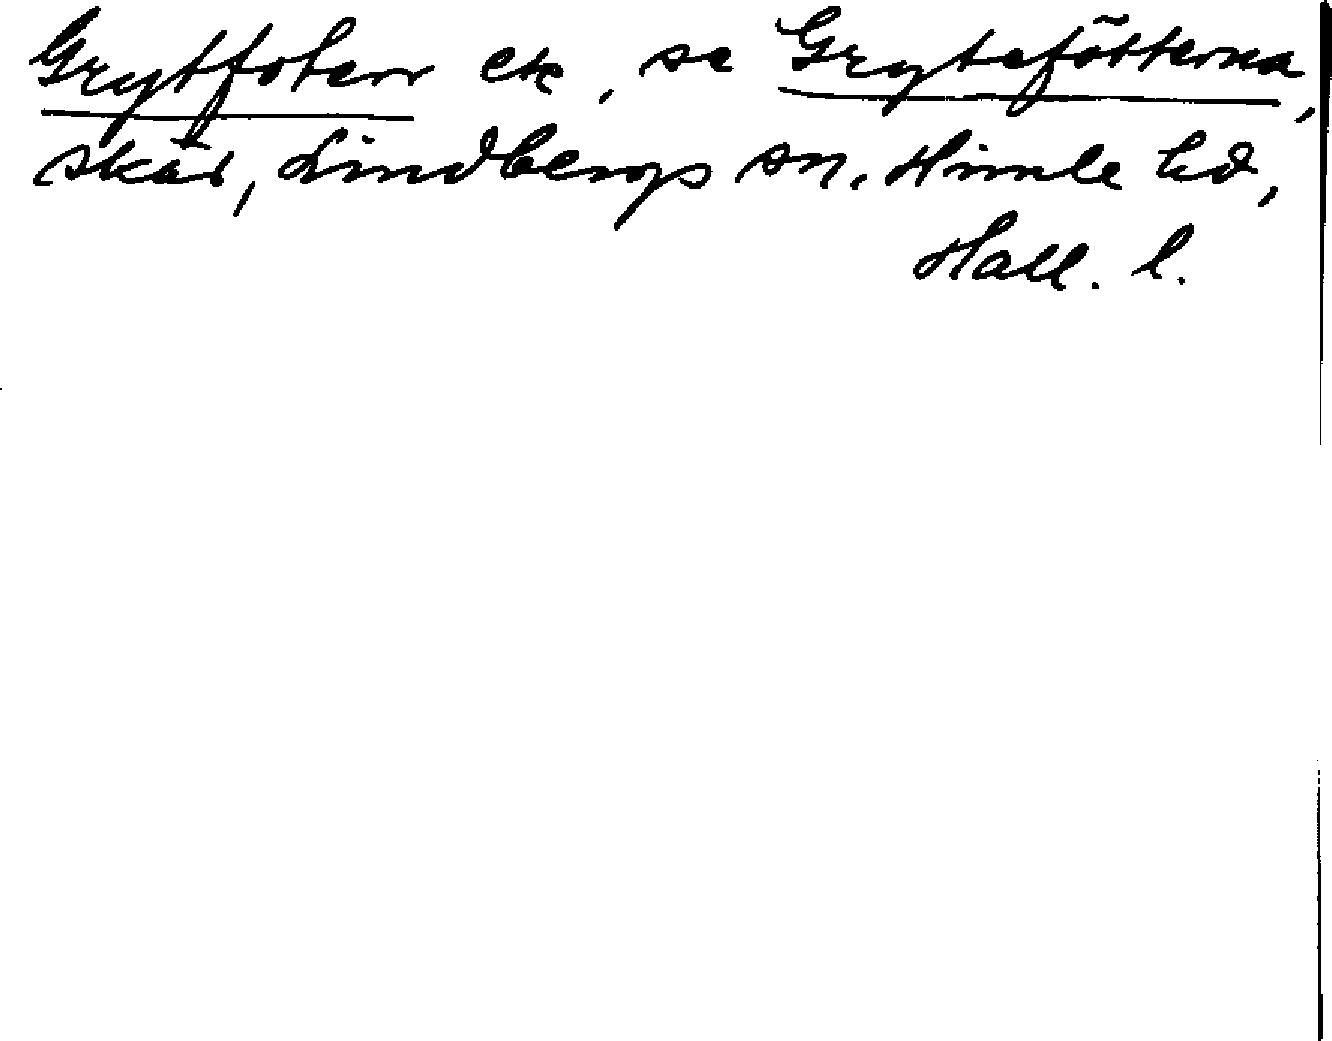 Grytfoten etc, se Grytefötterna,
skär, Lindbergs sn. Himle hd,
Hall. l.